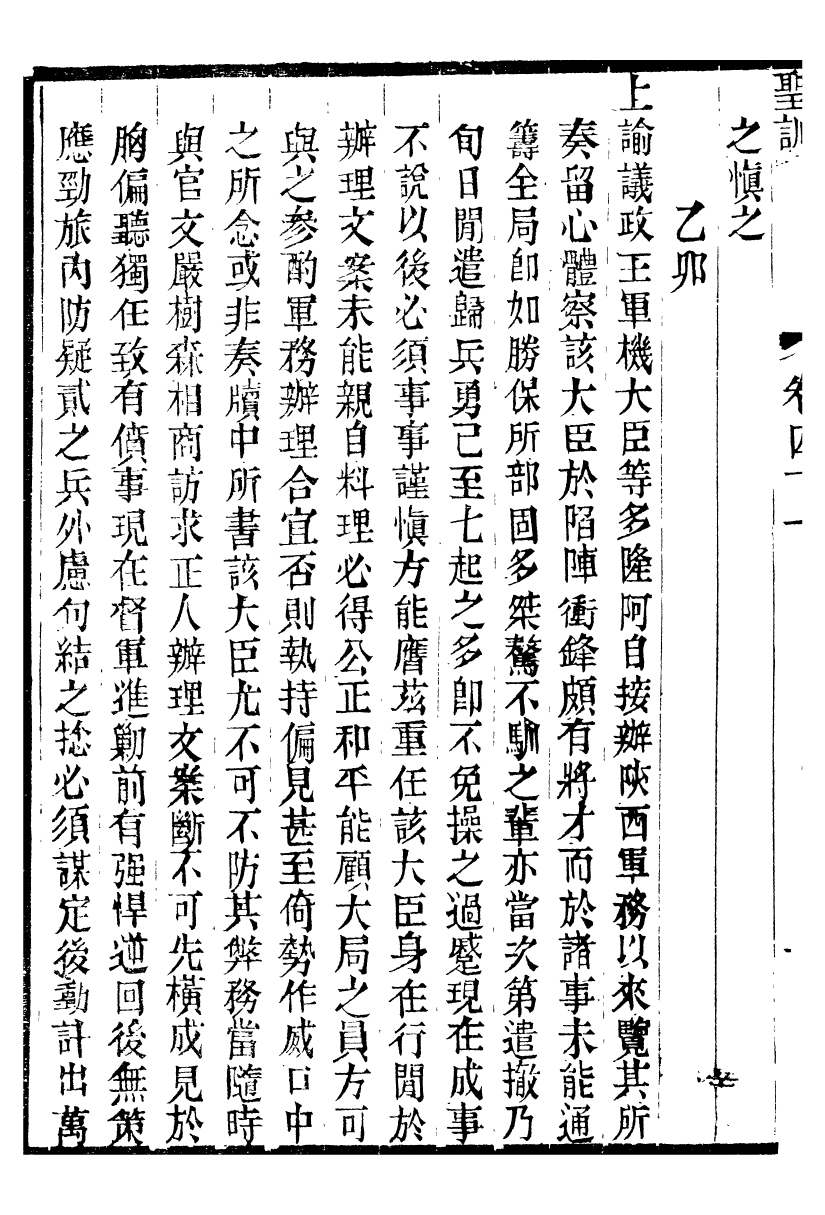 聖訓
卷四十一
之慎之
乙卯
上諭議政王軍機大臣等多隆阿自接辦陝西軍務以來覽其所
奏留心體察該大臣於陷陣衝鋒頗有將才而於諸事未能通
籌全局卽如勝保所部固多桀驁不馴之輩亦當次第遣撤乃
旬日閒遣歸兵勇已至七起之多卽不免操之過蹙現在成事
不說以後必須事事謹慎方能膺茲重任該大臣身在行閒於
辦理文案未能親自料理必得公正和平能顧大局之員方可
與之參酌軍務辦理合宜否則執持偏見甚至倚勢作威口中
之所念或非奏牘中所書該大臣尤不可不防其弊務當隨時
與官文嚴樹森相商訪求正人辦理文案斷不可先橫成見於
胸偏聽獨任致有僨事現在督軍進勦前有强悍逆回後無策
應勁旅內防疑貳之兵外慮句結之捻必須謀定後動計出萬